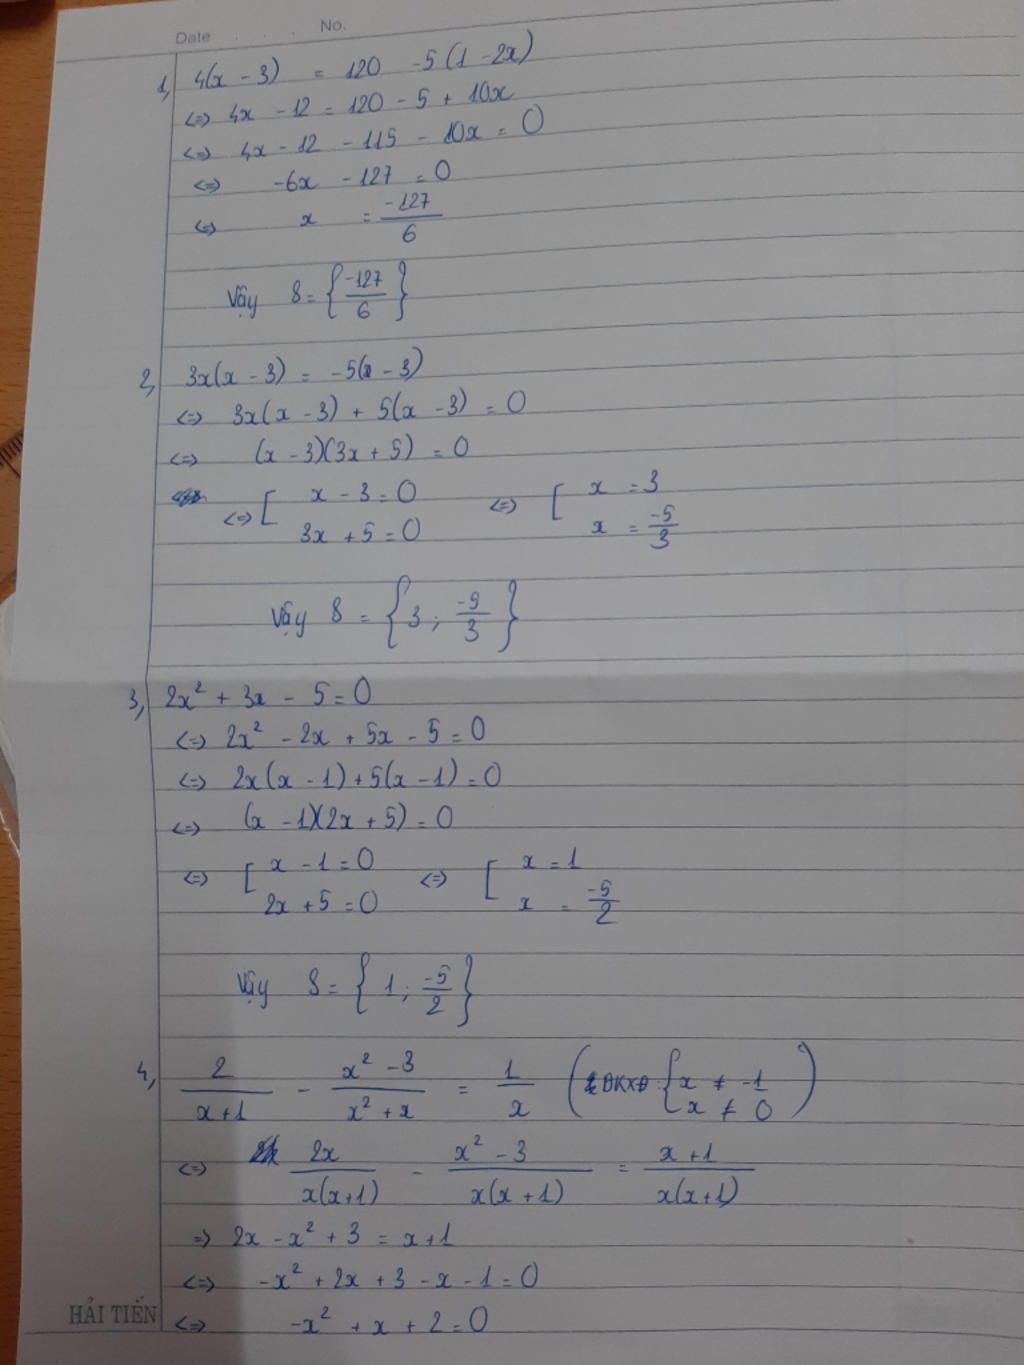 Date . . . No.
1, 4(x - 3) = 120 - 5(1 - 2x)
<=> 4x - 12 = 120 - 5 + 10x
<=> 4x - 12 - 115 - 10x = 0
<=> -6x - 127 = 0
<=> x = -127/6
Vậy S = {-127/6}
2, 3x(x - 3) = -5(x - 3)
<=> 3x(x - 3) + 5(x - 3) = 0
<=> (x - 3)(3x + 5) = 0
<=> [ x - 3 = 0 <=> [ x = 3
3x + 5 = 0 x = -5/3
Vậy S = {3 ; -5/3}
3, 2x² + 3x - 5 = 0
<=> 2x² - 2x + 5x - 5 = 0
<=> 2x(x - 1) + 5(x - 1) = 0
<=> (x - 1)(2x + 5) = 0
<=> [ x - 1 = 0 <=> [ x = 1
2x + 5 = 0 x = -5/2
Vậy S = {1 ; -5/2}
4, 2/(x+1) - (x² - 3)/(x² + x) = 1/x (ĐKXĐ: { x ≠ -1
x ≠ 0 )
<=> 2x/x(x+1) - (x² - 3)/x(x + 1) = (x + 1)/x(x+1)
=> 2x - x² + 3 = x + 1
<=> -x² + 2x + 3 - x - 1 = 0
<=> -x² + x + 2 = 0
HẢI TIẾN